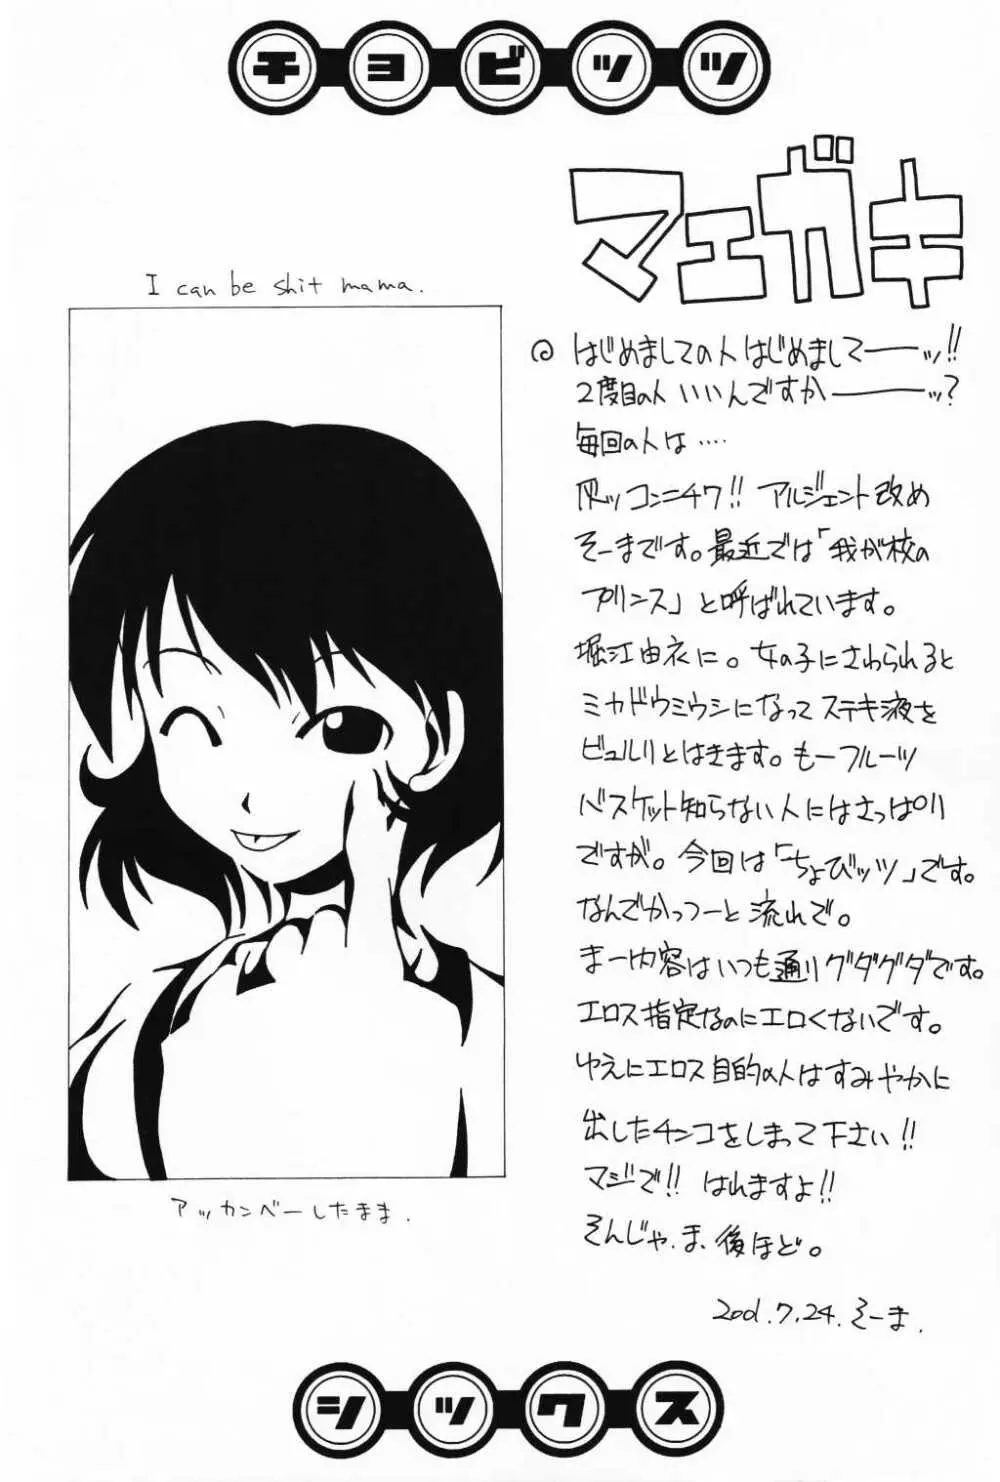 チョビッツ
マエガキ
I can be shit mama.
はじめましての人 はじめましてーーッ!!
2度目の人 いいんですかーーッ?
毎回の人は‥‥
灰ッコンニチワ!! アルジェント改め
そーまです。最近では「我が校の
プリンス」と呼ばれています。
堀江由衣に。女の子にさわられると
ミカドウミウシになってステキ液を
ビュルリとはきます。もーフルーツ
バスケット知らない人にはさっぱり
ですが。今回は「ちょびッツ」です。
なんでかっつーと流れで。
まー内容はいつも通りグダグダです。
エロス指定なのにエロくないです。
ゆえにエロス目的の人はすみやかに
出したチンコをしまって下さい!!
マジで!! はれますよ!!
そんじゃ.ま、後ほど。
2001.7.24.そーま.
アッカンベーしたまま.
シックス